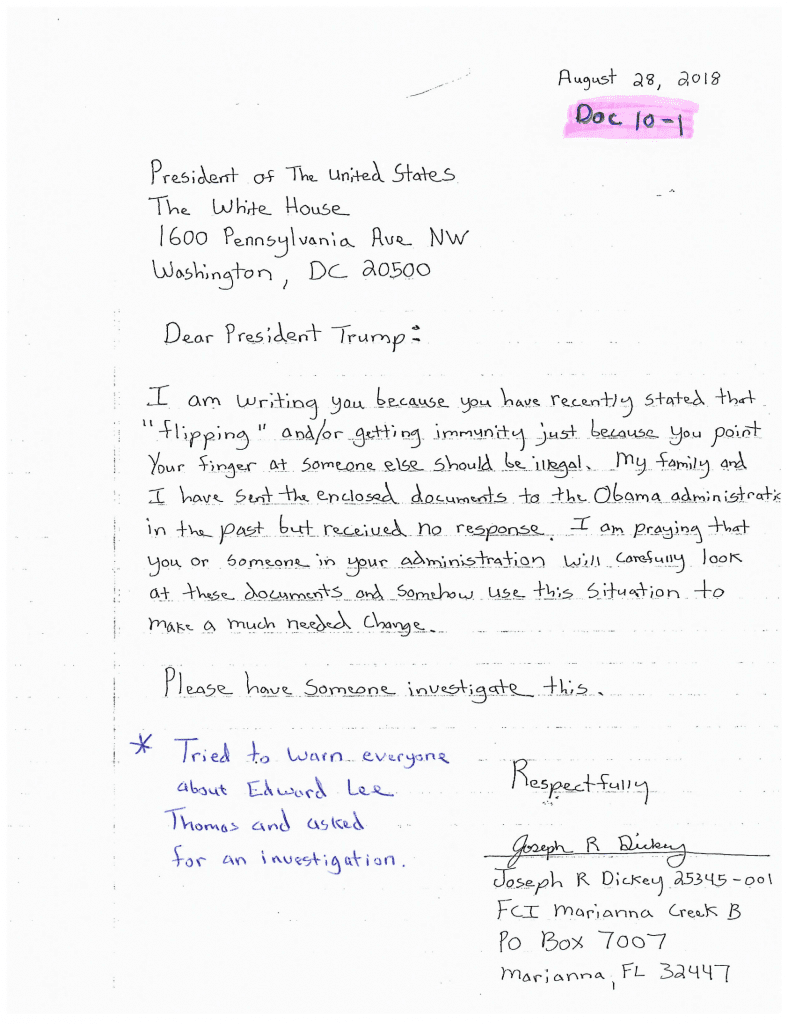 August 28, 2018
Doc 10-1
President of The United States
The White House
1600 Pennsylvania Ave NW
Washington, DC 20500
Dear President Trump:
I am writing you because you have recently stated that
"flipping" and/or getting immunity just because you point
Your finger at someone else should be illegal. My family and
I have sent the enclosed documents to the Obama administratio
in the past but received no response. I am praying that
you or someone in your administration will carefully look
at these documents and somehow use this situation to
make a much needed change.
Please have someone investigate this.
* Tried to warn everyone
about Edward Lee
Thomas and asked
for an investigation.
Respectfully
Joseph R Dickey
Joseph R Dickey 25345-001
FCI Marianna Creek B
PO Box 7007
Marianna, FL 32447